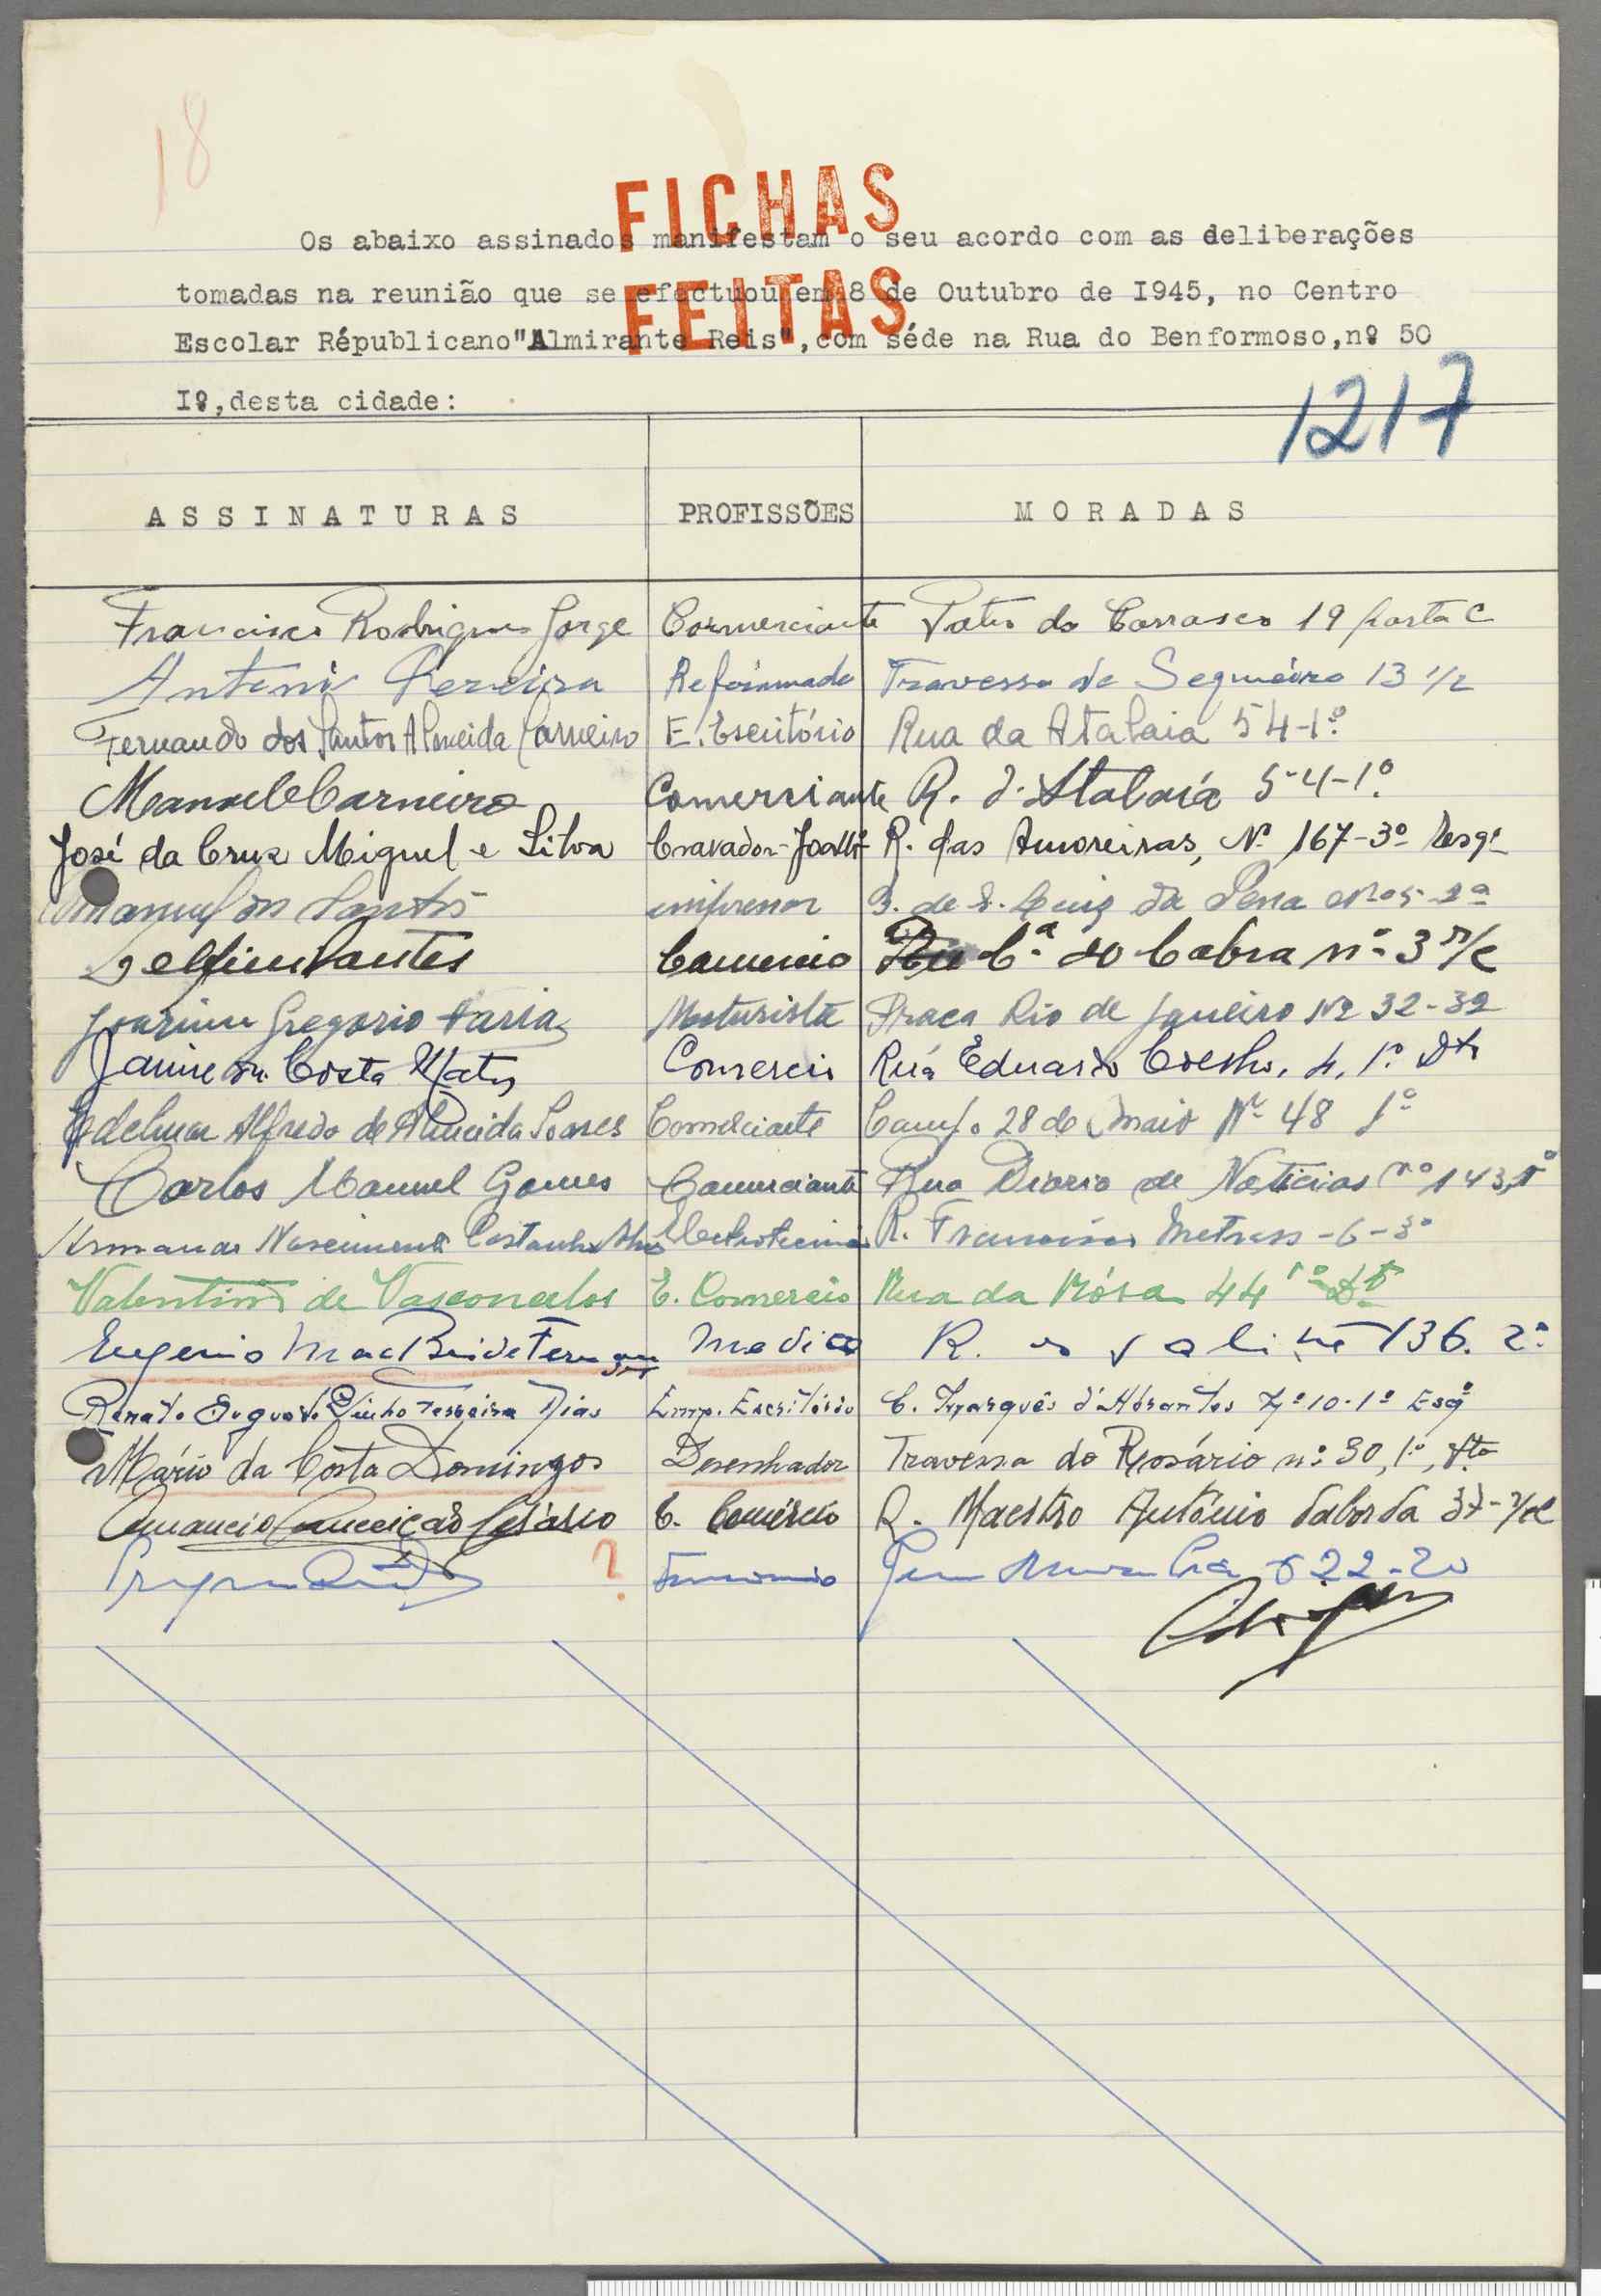 18
FICHAS
FEITAS
Os abaixo assinados manifestam o seu acordo com as deliberações
tomadas na reunião que se efectuou em 8 de Outubro de I945, no Centro
Escolar Républicano"Almirante Reis",com séde na Rua do Benformoso,nº 50
Iº,desta cidade:
1217
ASSINATURAS PROFISSÕES MORADAS
Francisco Rodrigues Jorge Comerciante Patio do Carrasco 19 porta C
Antonio Pereira Reformado Travessa de Sequeiro 13 1/2
Fernando dos Santos Almeida Carneiro E. Escritório Rua da Atalaia 54-1º
Manuel Carneiro Comerciante R. d'Atalaia 54-1º
José da Cruz Miguel e Silva Cravador-Joalhº R. das Amoreiras, Nº 167-3º Esqº
Manuel dos Santos impressor de S. Luiz da Pena
Delfim Santos Comercio Cª do Cabra nº 3 r/c
Gregorio Faria Motorista Praça Rio de Janeiro Nº 32-32
Jaime da Costa Matos Comercio Rua Eduardo Coelho, 4, 1º Dtº
Edelmar Alfredo de Almeida Soares Comerciante Campo 28 de Maio Nº 48 1º
Carlos Manuel Gomes Comerciante Rua Diario de Noticias nº 143, 1º
Armando Nascimento Castanheira R. Francisco Metrass-6-3º
Valentim de Vasconcelos E. Comercio Rua da Rósa 44 1º Dtº
Eugenio Mac Bride Fernandes Medico R. 136. 2º
Renato Augusto Pinho Teixeira Dias Emp. Escritório C. Marquês d'Abrantes Nº 10-1º Esqº
Mário da Costa Domingos Desenhador Travessa do Rosário nº 30, 1º, dto
Amancio Conceição Cesário E. Comércio R. Maestro António Taborda 37-r/c
? 22-2º